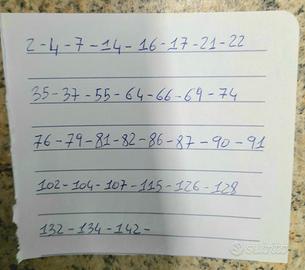 2-4-7-14-16-17-21-22
35-37-55-64-66-69-74
76-79-81-82-86-87-90-91
102-104-107-115-126-128
132-134-142-
subito